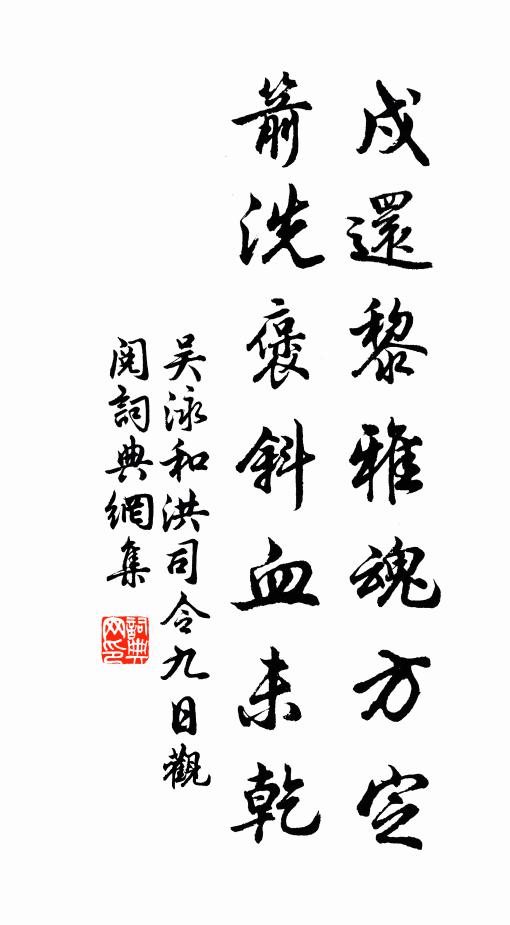 戍還黎雅魂方定
箭洗褒斜血未乾
吴泳和洪司令九日觀
閱詞典網集
詞典網印